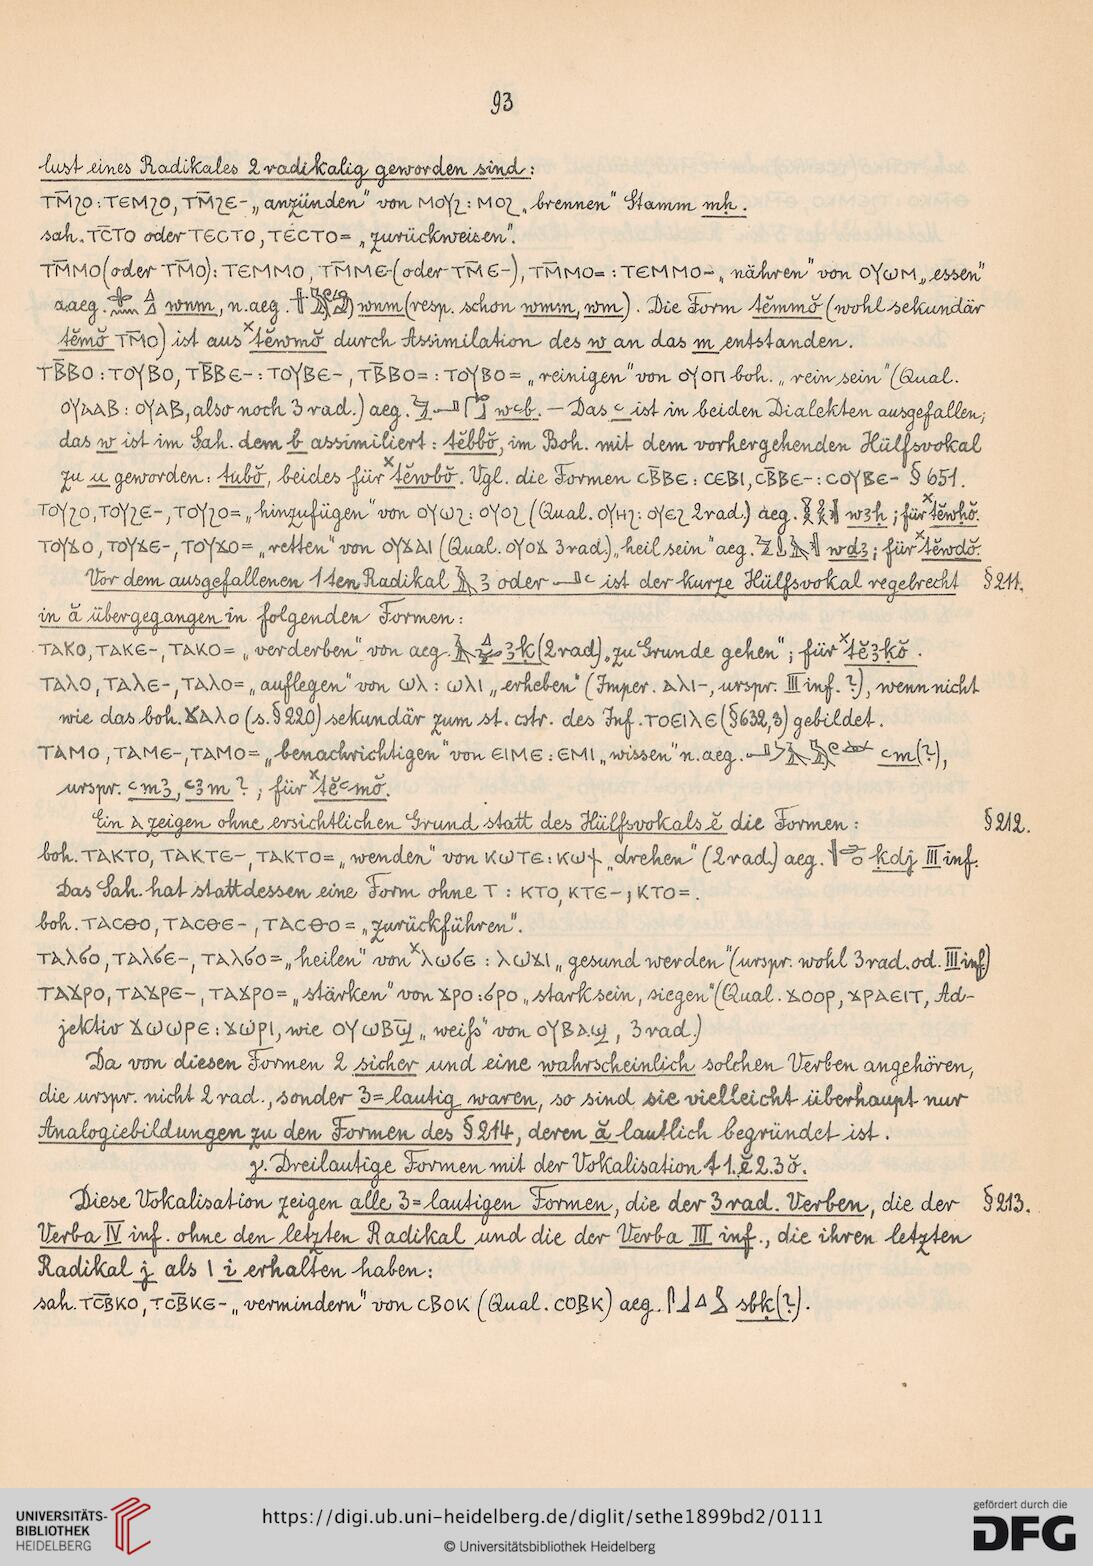 93
lust eines Radikales 2 radikalig geworden sind:
ⲧⲙ̅ϩⲟ : ⲧⲉⲙϩⲟ, ⲧⲙ̅ϩⲉ- „anzünden" von ⲙⲟⲩϩ : ⲙⲟϩ „brennen" Stamm mḥ.
sah. ⲧⲥ̅ⲧⲟ oder ⲧⲉⲥⲧⲟ, ⲧⲉⲥⲧⲟ= „zurückweisen".
ⲧⲙ̅ⲙⲟ (oder ⲧⲙ̅ⲟ) : ⲧⲉⲙⲙⲟ, ⲧⲙ̅ⲙⲉ- (oder ⲧⲙ̅ⲉ-), ⲧⲙ̅ⲙⲟ= : ⲧⲉⲙⲙⲟ- „nähren" von ⲟⲩⲱⲙ „essen"
a.aeg. wnm, n.aeg. wnm (resp. schon wmm, wm). Die Form tĕmmŏ (wohl sekundär
tĕmŏ ⲧⲙ̅ⲟ) ist aus ˣtĕwmŏ durch Assimilation des w an das m entstanden.
ⲧⲃ̅ⲃⲟ : ⲧⲟⲩⲃⲟ, ⲧⲃ̅ⲃⲉ- : ⲧⲟⲩⲃⲉ-, ⲧⲃ̅ⲃⲟ= : ⲧⲟⲩⲃⲟ= „reinigen" von ⲟⲩⲟⲡ boh. „rein sein" (Qual.
ⲟⲩⲁⲁⲃ : ⲟⲩⲁⲃ, also noch 3 rad.) aeg. wꜥb. — Das ꜥ ist in beiden Dialekten ausgefallen;
das w ist im Sah. dem b assimiliert : tĕbbŏ, im Boh. mit dem vorhergehenden Hülfsvokal
zu u geworden : tubŏ, beides für ˣtĕwbŏ. Vgl. die Formen ⲥⲃ̅ⲃⲉ : ⲥⲉⲃⲓ, ⲥⲃ̅ⲃⲉ- : ⲥⲟⲩⲃⲉ- § 651.
ⲧⲟⲩϩⲟ, ⲧⲟⲩϩⲉ-, ⲧⲟⲩϩⲟ= „hinzufügen" von ⲟⲩⲱϩ : ⲟⲩⲟϩ (Qual. ⲟⲩⲏϩ : ⲟⲩⲉϩ 2 rad.) aeg. wꜣḥ ; für ˣtĕwḥŏ.
ⲧⲟⲩϫⲟ, ⲧⲟⲩϫⲉ-, ⲧⲟⲩϫⲟ= „retten" von ⲟⲩϫⲁⲓ (Qual. ⲟⲩⲟϫ 3 rad.) „heil sein" aeg. wdꜣ ; für ˣtĕwdŏ.
Vor dem ausgefallenen 1ten Radikal ꜣ oder ꜥ ist der kurze Hülfsvokal regelrecht § 211.
in ă übergegangen in folgenden Formen:
ⲧⲁⲕⲟ, ⲧⲁⲕⲉ-, ⲧⲁⲕⲟ= „verderben" von aeg. ꜣḳ (2 rad) „zu Grunde gehen" ; für ˣtĕꜣḳŏ.
ⲧⲁⲗⲟ, ⲧⲁⲗⲉ-, ⲧⲁⲗⲟ= „auflegen" von ⲱⲗ : ⲱⲗⲓ „erheben" (Imper. ⲁⲗⲓ-, urspr. III inf. ?), wenn nicht
wie das boh. ϫⲁⲗⲟ (s. § 220) sekundär zum st. cstr. des Inf. ⲧⲟⲉⲓⲗⲉ (§ 632,3) gebildet.
ⲧⲁⲙⲟ, ⲧⲁⲙⲉ-, ⲧⲁⲙⲟ= „benachrichtigen" von ⲉⲓⲙⲉ : ⲉⲙⲓ „wissen" n.aeg. ꜥm (?),
urspr. ꜥmꜣ, ꜥꜣm ? ; für ˣtĕꜥmŏ.
Ein ⲁ zeigen ohne ersichtlichen Grund statt des Hülfsvokals ĕ die Formen : § 212.
boh. ⲧⲁⲕⲧⲟ, ⲧⲁⲕⲧⲉ-, ⲧⲁⲕⲧⲟ= „wenden" von ⲕⲱⲧⲉ : ⲕⲱϯ „drehen" (2 rad.) aeg. ḳdj III inf.
Das Sah. hat stattdessen eine Form ohne ⲧ : ⲕⲧⲟ, ⲕⲧⲉ-, ⲕⲧⲟ=.
boh. ⲧⲁⲥⲑⲟ, ⲧⲁⲥⲑⲉ-, ⲧⲁⲥⲑⲟ= „zurückführen".
ⲧⲁⲗϭⲟ, ⲧⲁⲗϭⲉ-, ⲧⲁⲗϭⲟ= „heilen" von ˣⲗⲱϭⲉ : ⲗⲱϫⲓ „gesund werden" (urspr. wohl 3 rad. od. III inf.)
ⲧⲁϫⲣⲟ, ⲧⲁϫⲣⲉ-, ⲧⲁϫⲣⲟ= „stärken" von ϫⲣⲟ : ϭⲣⲟ „stark sein, siegen" (Qual. ϫⲟⲟⲣ, ϫⲣⲁⲉⲓⲧ, Ad-
jektiv ϫⲱⲱⲣⲉ : ϫⲱⲣⲓ, wie ⲟⲩⲱⲃϣ̅ „weiß" von ⲟⲩⲃⲁϣ, 3 rad.)
Da von diesen Formen 2 sicher und eine wahrscheinlich solchen Verben angehören,
die urspr. nicht 2 rad., sonder 3=lautig waren, so sind sie vielleicht überhaupt nur
Analogiebildungen zu den Formen des § 214, deren ă lautlich begründet ist.
γ. Dreilautige Formen mit der Vokalisation t 1. ĕ 2. 3 ŏ.
Diese Vokalisation zeigen alle 3=lautigen Formen, die der 3 rad. Verben, die der § 213.
Verba IV inf. ohne den letzten Radikal und die der Verba III inf., die ihren letzten
Radikal j als ⲓ i erhalten haben:
sah. ⲧⲥⲃ̅ⲕⲟ, ⲧⲥⲃ̅ⲕⲉ- „vermindern" von ⲥⲃⲟⲕ (Qual. ⲥⲟⲃⲕ) aeg. sbḳ (?).
UNIVERSITÄTS-
BIBLIOTHEK
HEIDELBERG
https://digi.ub.uni-heidelberg.de/diglit/sethe1899bd2/0111
© Universitätsbibliothek Heidelberg
gefördert durch die
DFG